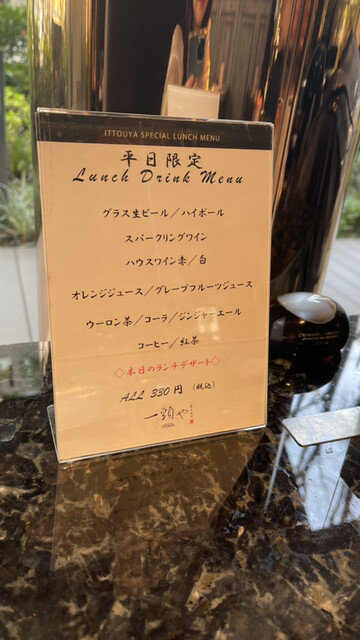 ITTOUYA SPECIAL LUNCH MENU
平日限定
Lunch Drink Menu
グラス生ビール／ハイボール
スパークリングワイン
ハウスワイン赤／白
オレンジジュース／グレープフルーツジュース
ウーロン茶／コーラ／ジンジャーエール
コーヒー／紅茶
◇本日のランチデザート◇
ALL 330円 (税込)
一頭や